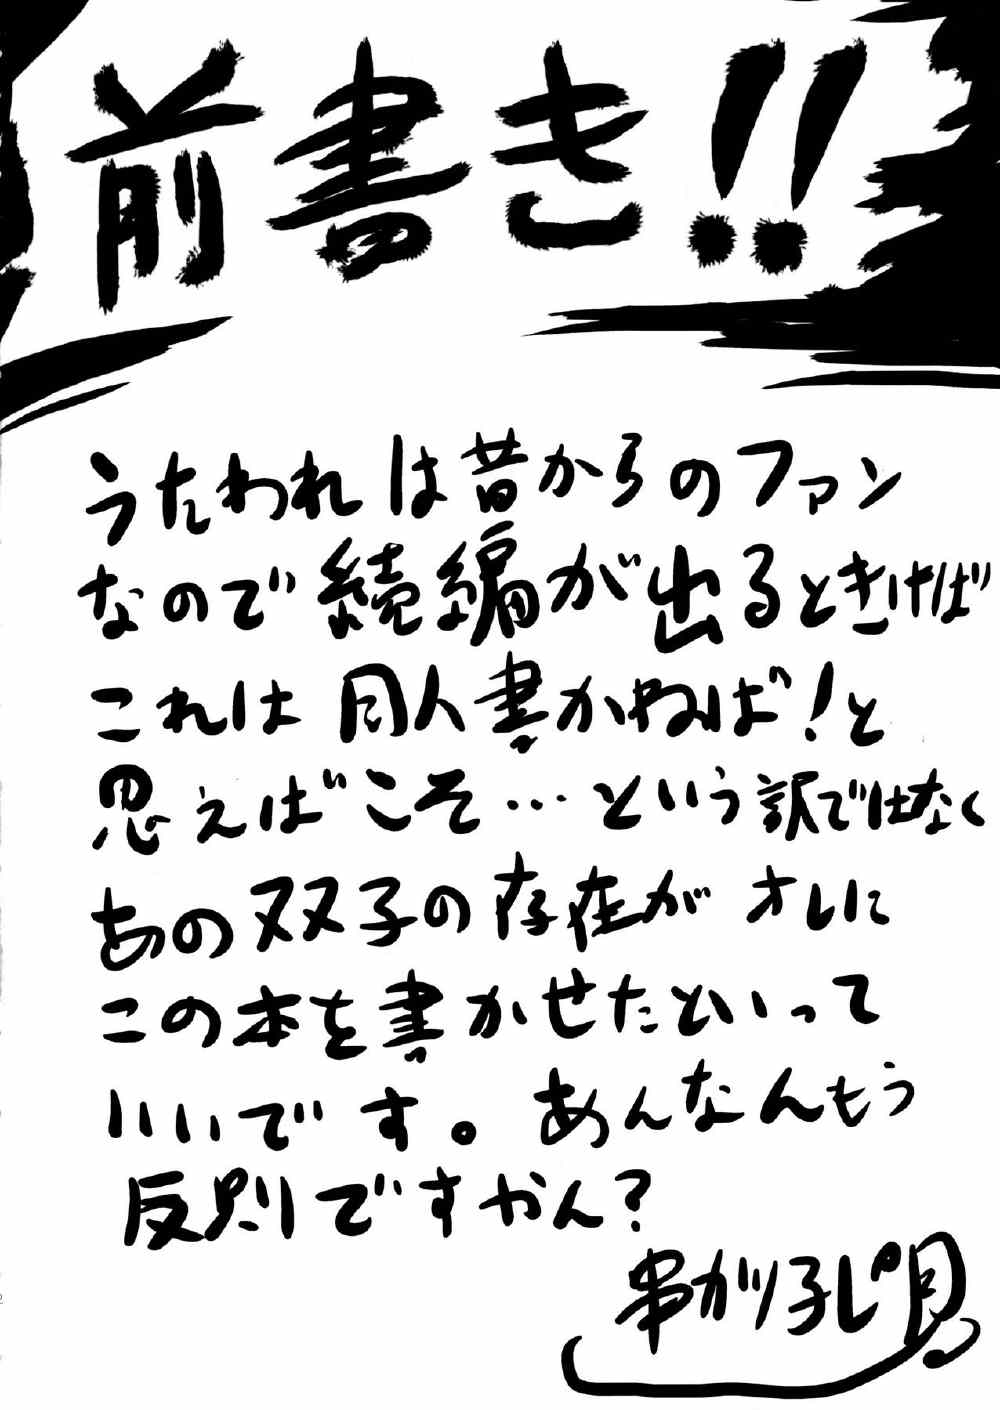 前書き!!
うたわれは昔からのファン
なので続編が出るときけば
これは同人書かねば!と
思えばこそ…という訳ではなく
あの双子の存在がオレに
この本を書かせたといって
いいです。あんなんもう
反則ですやん?
串カツ子ぴ